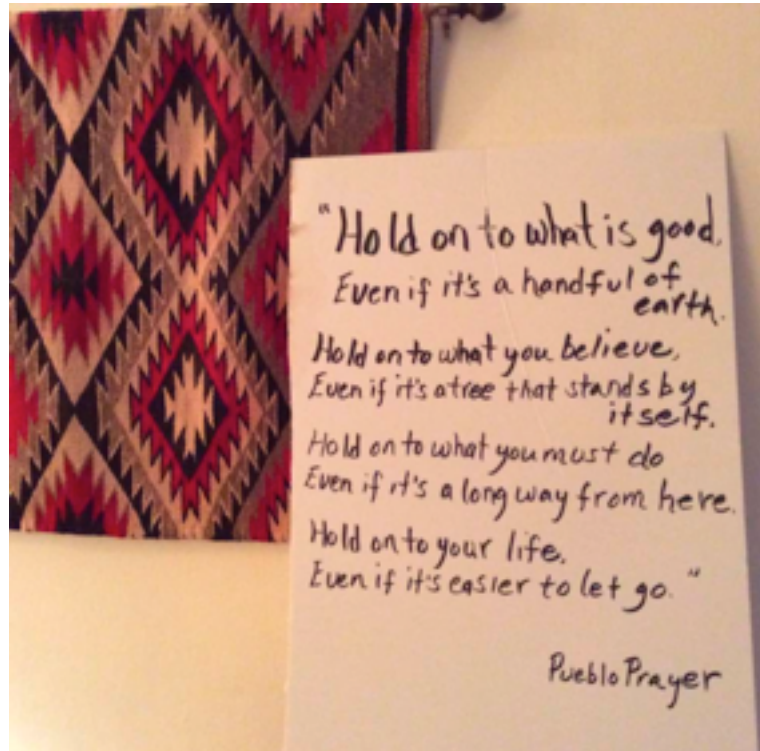 "Hold on to what is good,
Even if it's a handful of
earth.
Hold on to what you believe,
Even if it's a tree that stands by
itself.
Hold on to what you must do
Even if it's a long way from here.
Hold on to your life,
Even if it's easier to let go."
Pueblo Prayer